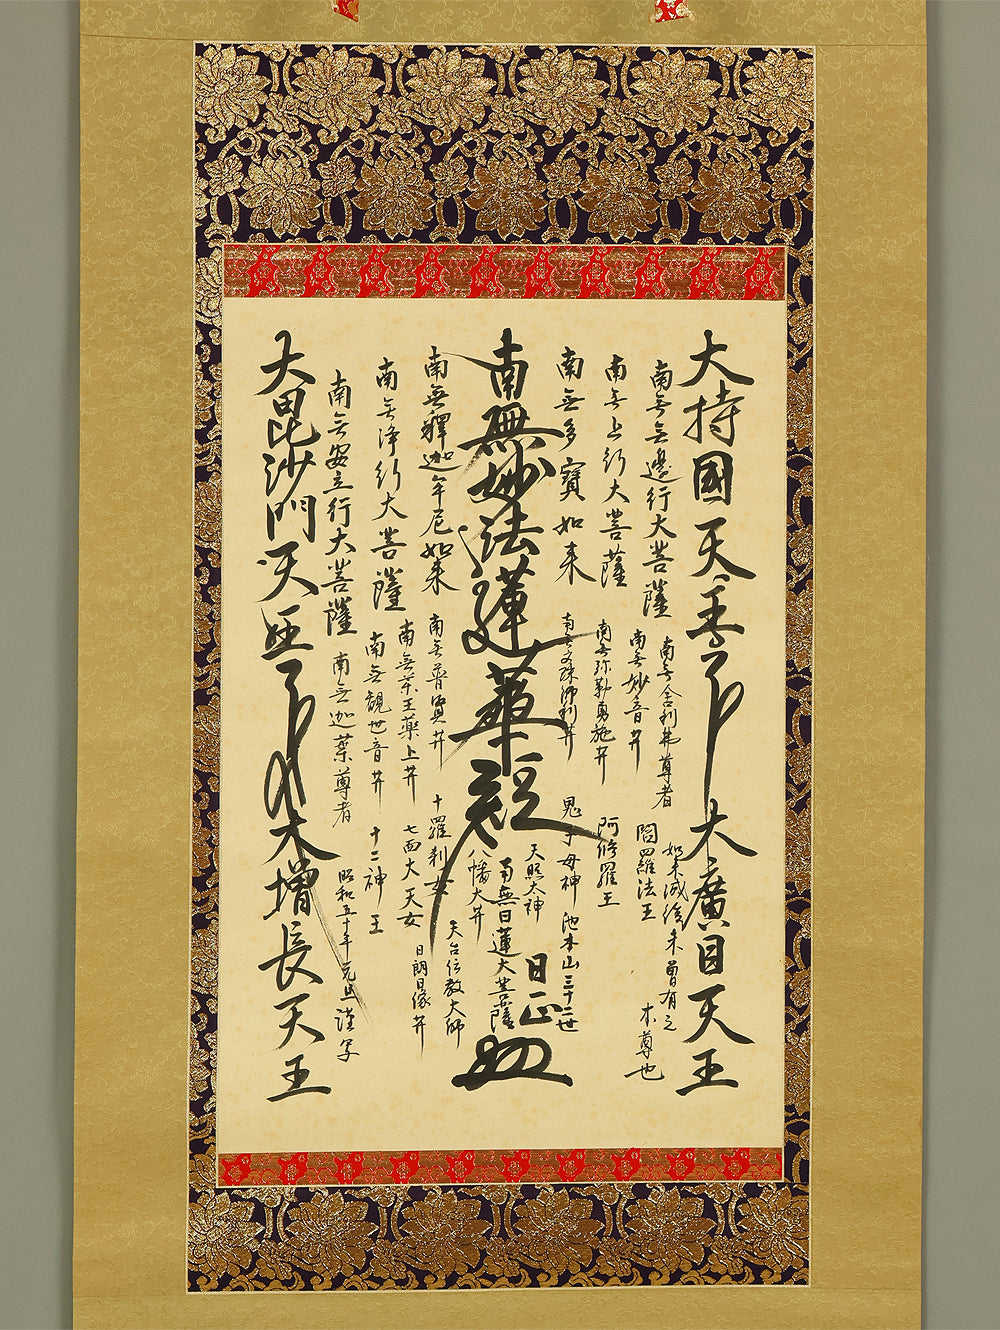 大持國天王
大廣目天王
南無無邊行大菩薩
南無舍利弗尊者
如来滅後未曽有之
本尊也
南無上行大菩薩
南無妙音井
閻羅法王
南無多寶如来
南無弥勒勇施井
阿修羅王
南無文殊師利井
鬼子母神
池本山三十二世
日正
南無妙法蓮華經
天照太神
南無日蓮大菩薩
八幡大井
南無釋迦牟尼如来
南無普賢井
十羅刹女
天台伝教大師
南無浄行大菩薩
南無薬王薬上井
七面大天女
日朗日像井
南無安立行大菩薩
南無観世音井
十二神王
南無迦葉尊者
昭和五十年元旦謹写
大毘沙門天王
大増長天王